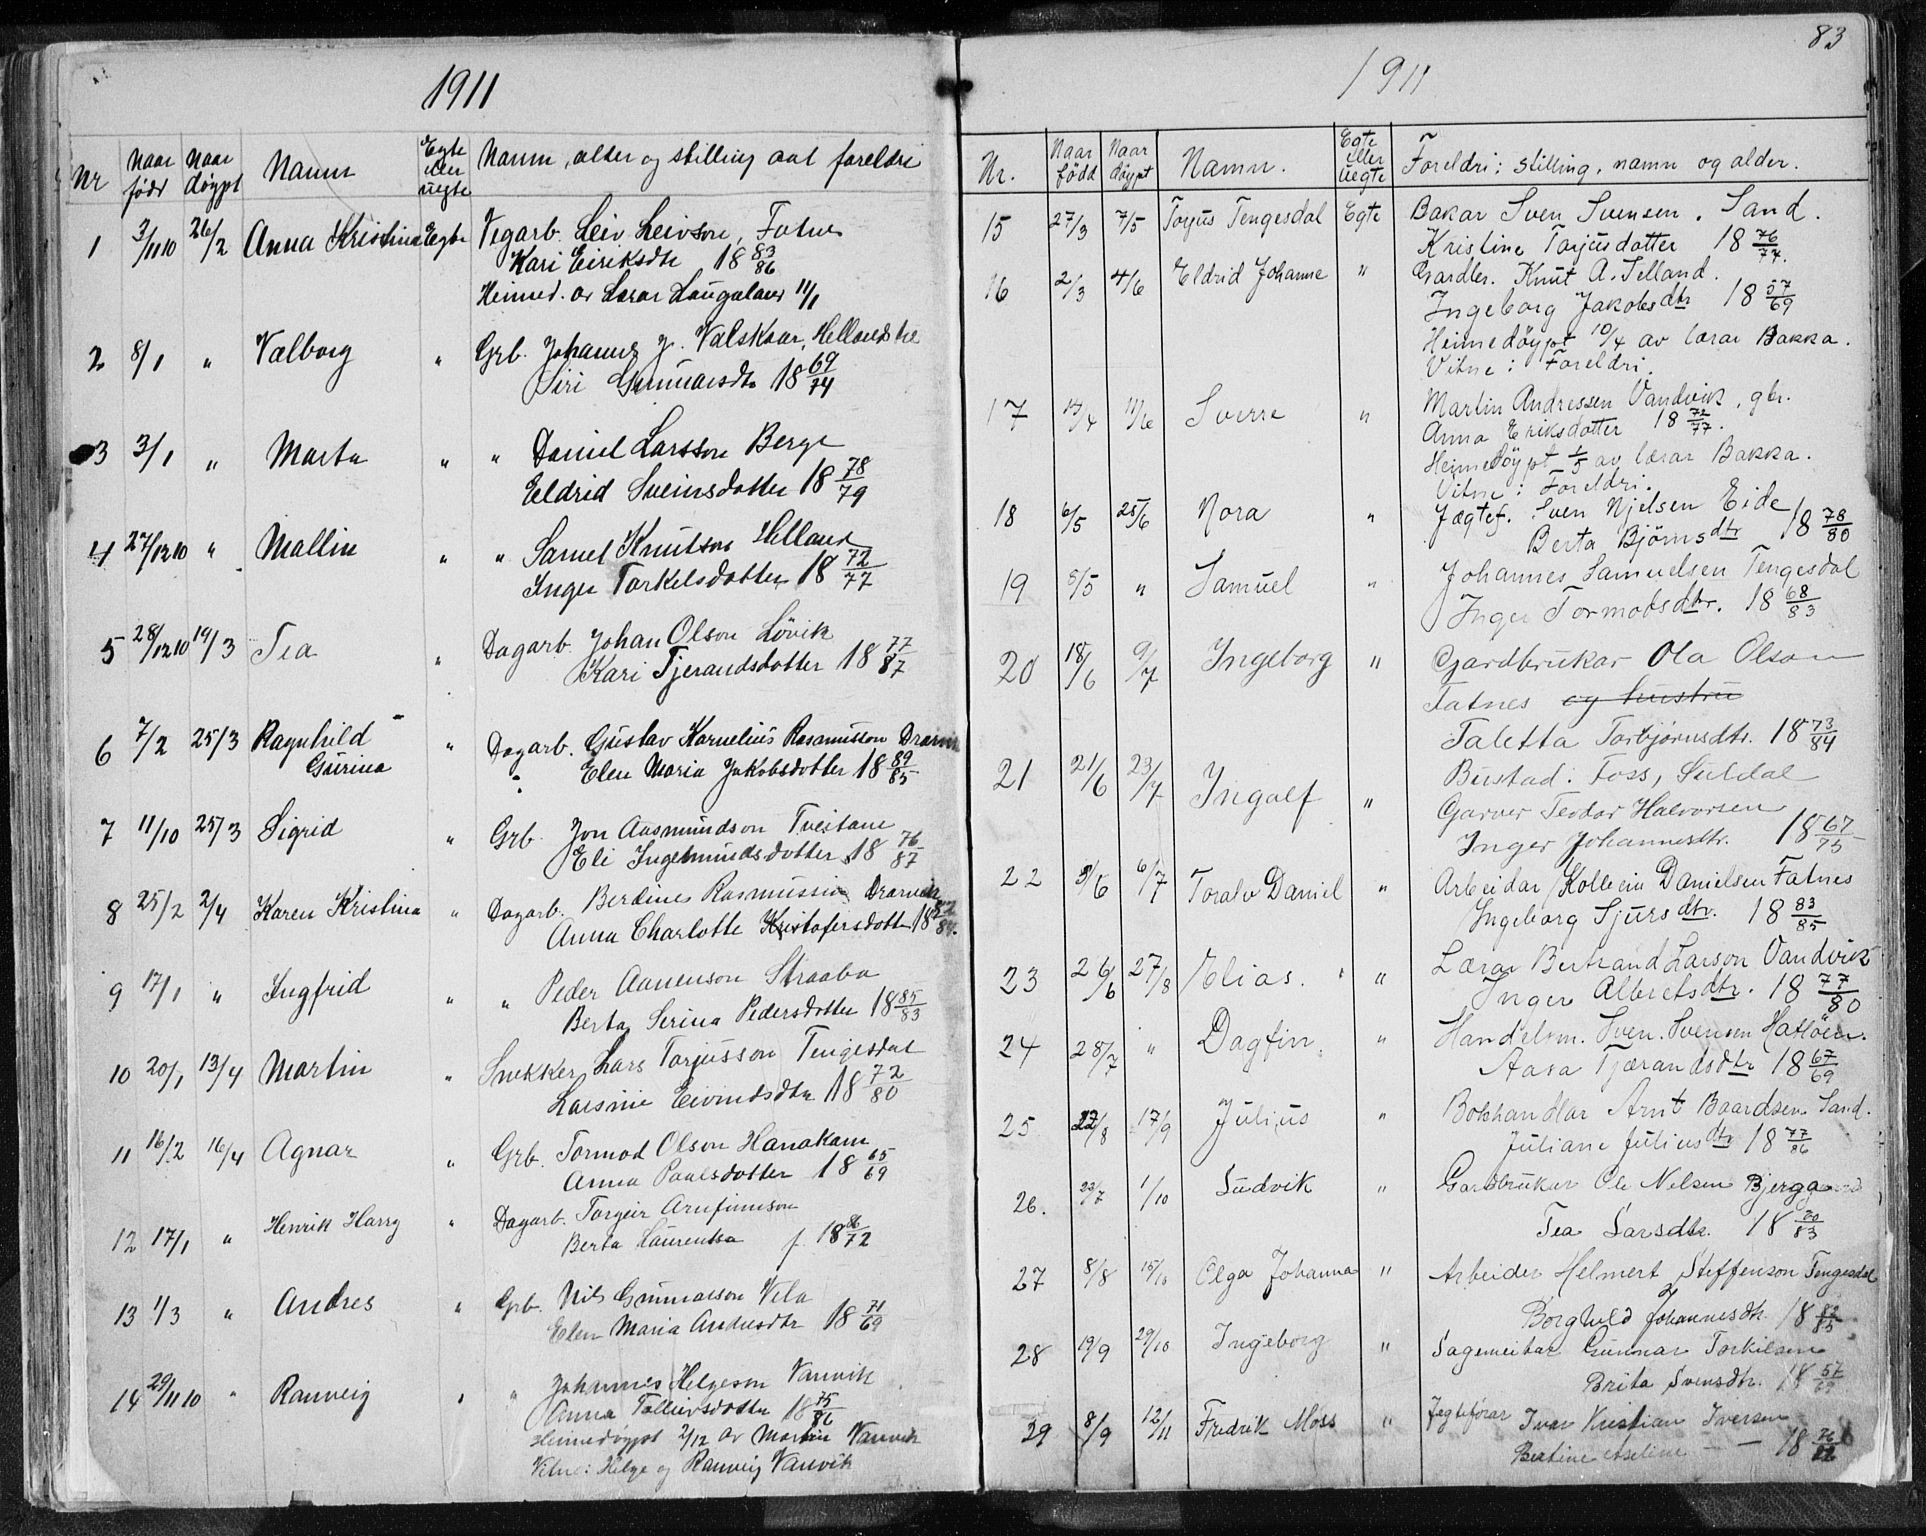 1911
Nr Naar født Naar døypt Namn Egte eller uegte Namn, alder og stilling aat foreldre
1 3/11 10 26/2 Anna Kristina Egte Vegarb. Leiv Leivson, Fatnes
Kari Eiriksdtr 18 83/86
Heimed. av Lærar Laugaland 11/1
2 8/1 " Valborg " Grb. Johannes J. Valskaar, Hellandslie
Siri Gunnarsdtr 18 69/74
3 3/1 " Marta " " Daniel Larsson Berge
Eldrid Sveinsdotter 18 78/79
4 27/12 10 " Mallin " " Samuel Knutson Helland
Inger Torkelsdotter 18 72/77
5 28/12 10 19/3 Tea " Dagarb. Johan Olson Lövik
Kari Tjerandsdotter 18 77/87
6 7/2 25/3 Ragnhild " Dagarb. Gustav Kornelius Rasmusson Drarvik
Gurina " Elen Maria Jakobsdotter 18 89/85
7 11/10 25/3 Sigrid " Grb. Jon Aasmundson Tveitane
Eli Ingemundsdotter 18 76/87
8 25/2 2/4 Karen Kristina " Dagarb. Berdines Rasmussen Drarvik
Anna Charlotte Kristofersdotter 18
9 17/1 " Ingfrid " " Peder Aanenson Straabø
Berta Serina Pedersdotter 18 85/83
10 20/1 13/4 Martin " Snekker Lars Torjusson Tengesdal
Larsine Eivindsdtr 18 72/80
11 16/2 16/4 Agnar " Grb. Tormod Olson Hanakam
Anna Paulsdotter 18 65/69
12 17/1 " Henrik Harry " Dagarb. Torgeir Arnfinnson
Berta Laurentsa f. 18 86/72
13 1/3 " Andres " Grb. Nils Gunnarson Vela
Elen Maria Andersdtr 18 71/69
14 29/11 10 " Ranveig " " Johannes Helgeson Vanvik
Anna Tolleivsdotter 18 75/86
Heimedøypt 2/12 av Martin Vanvik
Vitne: Helge og Ranveig Vanvik
83
1911
Nr. Naar född Naar döypt Namn. Egte eller Uegte Foreldri: stilling, namn og alder.
15 27/3 7/5 Torjus Tengesdal Egte Bakar Sven Svensen, Sand.
Kristine Torjusdotter 18 76/77.
16 2/3 4/6 Eldrid Johanne " Gardbr. Knut A. Selland.
Ingeborg Jakobsdtr 18 57/69
Heimedöypt 10/4 av lærar Bakka.
Vitne: Foreldri.
17 14/4 11/6 Sverre " Martin Andressen Vandvik, gbr.
Anna Eriksdotter 18 72/77.
Heimedöypt 1/5 av lærar Bakka.
Vitne: Foreldri.
18 6/5 25/6 Nora " Jægtef. Sven Njelsen Eide
Berta Bjørnsdtr 18 78/80
19 5/5 " Samuel " Johannes Samuelsen Tengesdal
Inger Tormodsdtr. 18 68/83
20 18/6 9/7 Ingeborg " Gardbrukar Ola Olson
Fatnes og hustru
Taletta Torbjørnsdtr. 18 73/84
21 21/6 23/7 Ingolf " Bustad: Foss, Suldal
Garver Teodor Halvorsen
Inger Johannesdtr. 18 67/75
22 3/6 6/7 Toralv Daniel " Arbeidar Kollein Danielsen Fatnes
Ingeborg Sjursdtr. 18 83/85
23 26/6 27/8 Elias. " Lærar Bertrand Larson Vandvik
Inger Albretsdtr. 18 77/80
24 28/7 " Dagfin " Handelsm. Sven Svensen Hatlöen.
Aasa Tjærandsdtr 18 67/69
25 27/8 17/9 Julius " Bokhandlar Arnt Baardsen Sand.
Juliane Juliusdtr 18 77/86
26. 22/7 1/10 Ludvik " Gardbrukar Ole Nelsen Bjerga
Tea Larsdtr. 18 80/83
27 8/8 15/10 Olga Johanna " Arbeider Helmert Steffenson Tengesdal
Borghild Johannesdtr. 18 82/85
28 19/9 29/10 Ingeborg " Sagmeistar Gunnar Torkilsen
Brita Svensdtr. 18 57/69
29 8/9 12/11 Fredrik Moss " Jegteførar Ivar Kristian Iversen
Bertine Aseline — — 18 76/82